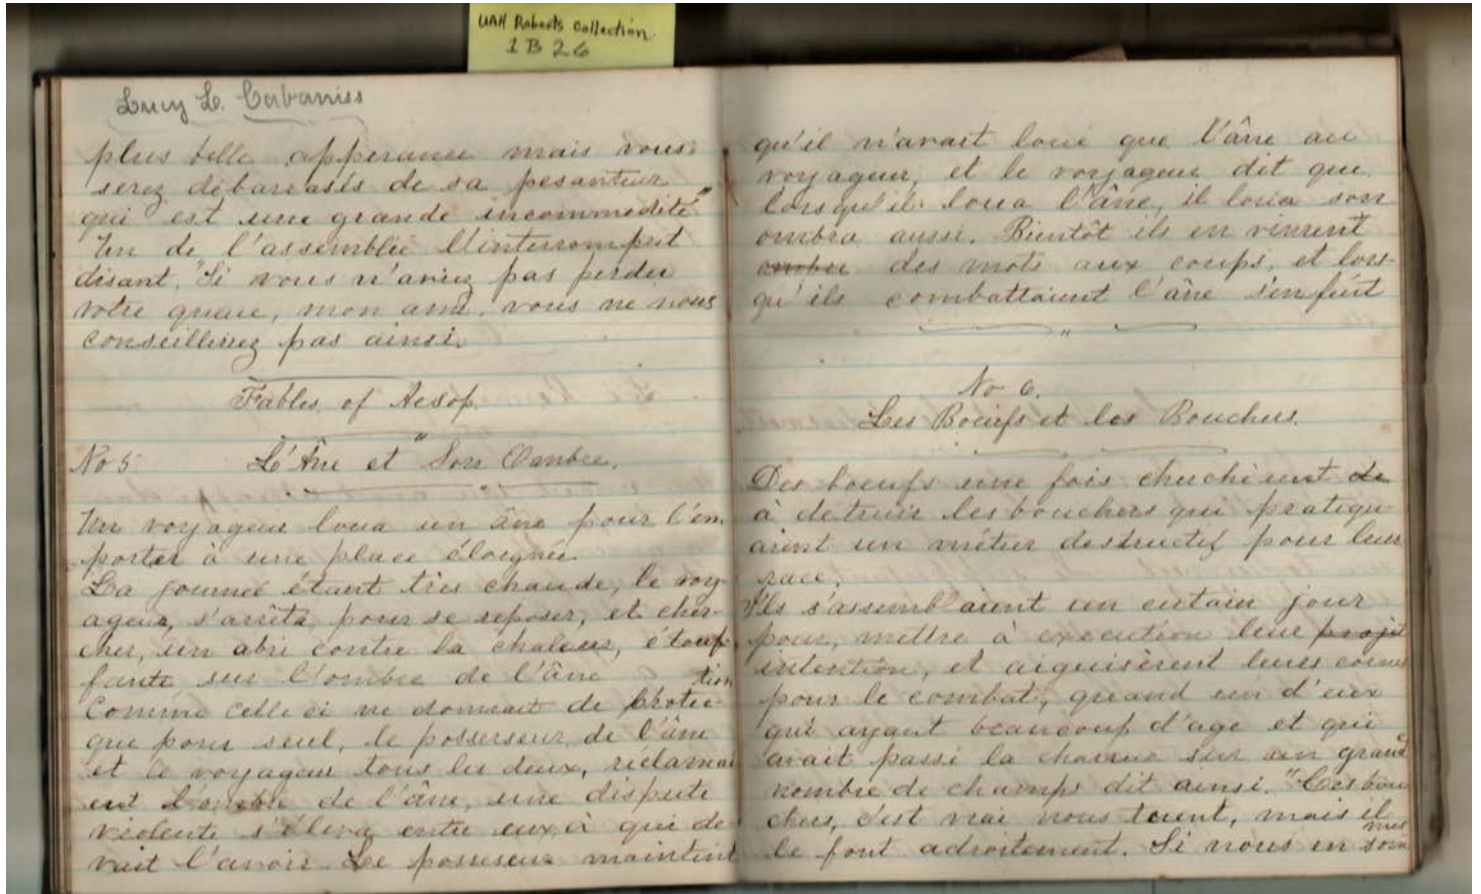 UAH Roberts Collection
1B26
Lucy L. Cabaniss
plus belle apperance mais vous
serez débarassés de sa pesanteur
qui est une grande incommodité"
Un de l'assemblée l'interrompit
disant, "Si vous n'aviez pas perdu
votre queue, mon ami, vous ne nous
conseilleriez pas ainsi.
Fables of Aesop.
No 5 L'Âne et Son Ombre.
Un voyageur loua un âne pour l'em
porter à une place éloignée.
La journée étant très chaude, le voy-
ageur, s'arrêta pour se reposer, et cher-
cher, un abri contre la chaleur, étouf-
fante sur l'ombre de l'âne
Comme celle ci ne donnait de protec-
tion
que pour seul, le possesseur de l'âne
et le voyageur tous les deux, réclamai
ent l'ombre de l'âne, une dispute
violente s'éleva entre eux, à qui de-
vait l'avoir. Le possesseur maintint
qu'il n'avait loué que l'âne au
voyageur, et le voyageur dit que
lorsqu'il loua l'âne, il loua son
ombre aussi. Bientôt ils en vinrent
des mots aux coups, et lors-
qu'ils combattaient l'âne s'enfuit
No 6.
Les Boeufs et les Bouchers.
Des boeufs une fois cherchèrent de
à detruir les bouchers qui pratiqu-
aient un métier destructif pour leur
race.
Ils s'assemblaient un certain jour
pour, mettre à execution leur projet
intention, et aiguisèrent leurs cornes
pour le combat, quand un d'eux
qui ayant beaucoup d'age et qui
avait passé la charrue sur un grand
nombre de champs dit ainsi. "Ces bou
chers, c'est vrai nous tuent, mais il
le font adroitement. Si nous en som
mes